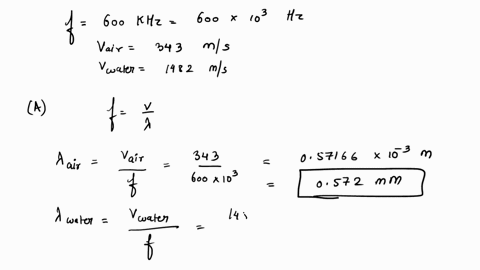 f = 600 KHz = 600 × 10³ Hz
Vair = 343 m/s
Vwater = 1982 m/s
(A) f = V/λ
λair = Vair/f = 343/600 × 10³ = 0.57166 × 10⁻³ m
= 0.572 mm
λwater = Vwater/f = 14